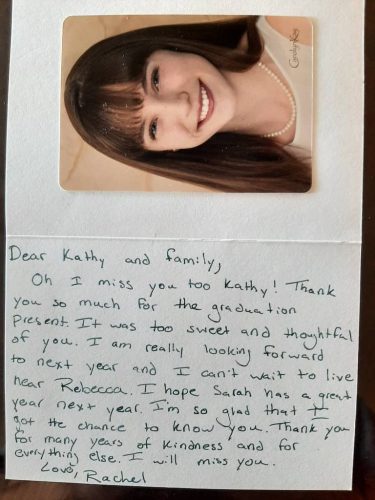 Carolyn Kay
Dear Kathy and family,
Oh I miss you too Kathy! Thank
you so much for the graduation
present. It was too sweet and thoughtful
of you. I am really looking forward
to next year and I can't wait to live
near Rebecca. I hope Sarah has a great
year next year. I'm so glad that I
got the chance to know you. Thank you
for many years of kindness and for
everything else. I will miss you.
Love, Rachel